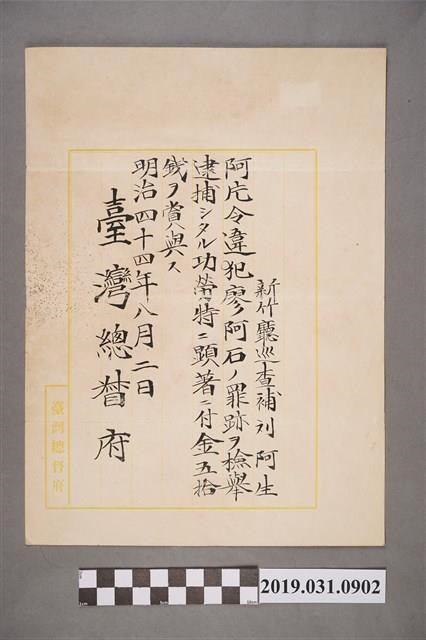 新竹廳巡查補 刘 阿生
阿片令違犯廖阿石ノ罪跡ヲ檢舉
逮捕シタル功勞特ニ顯著ニ付金五拾
錢ヲ賞與ス
明治四十四年八月二日
臺灣總督府
臺灣總督府
2019.031.0902